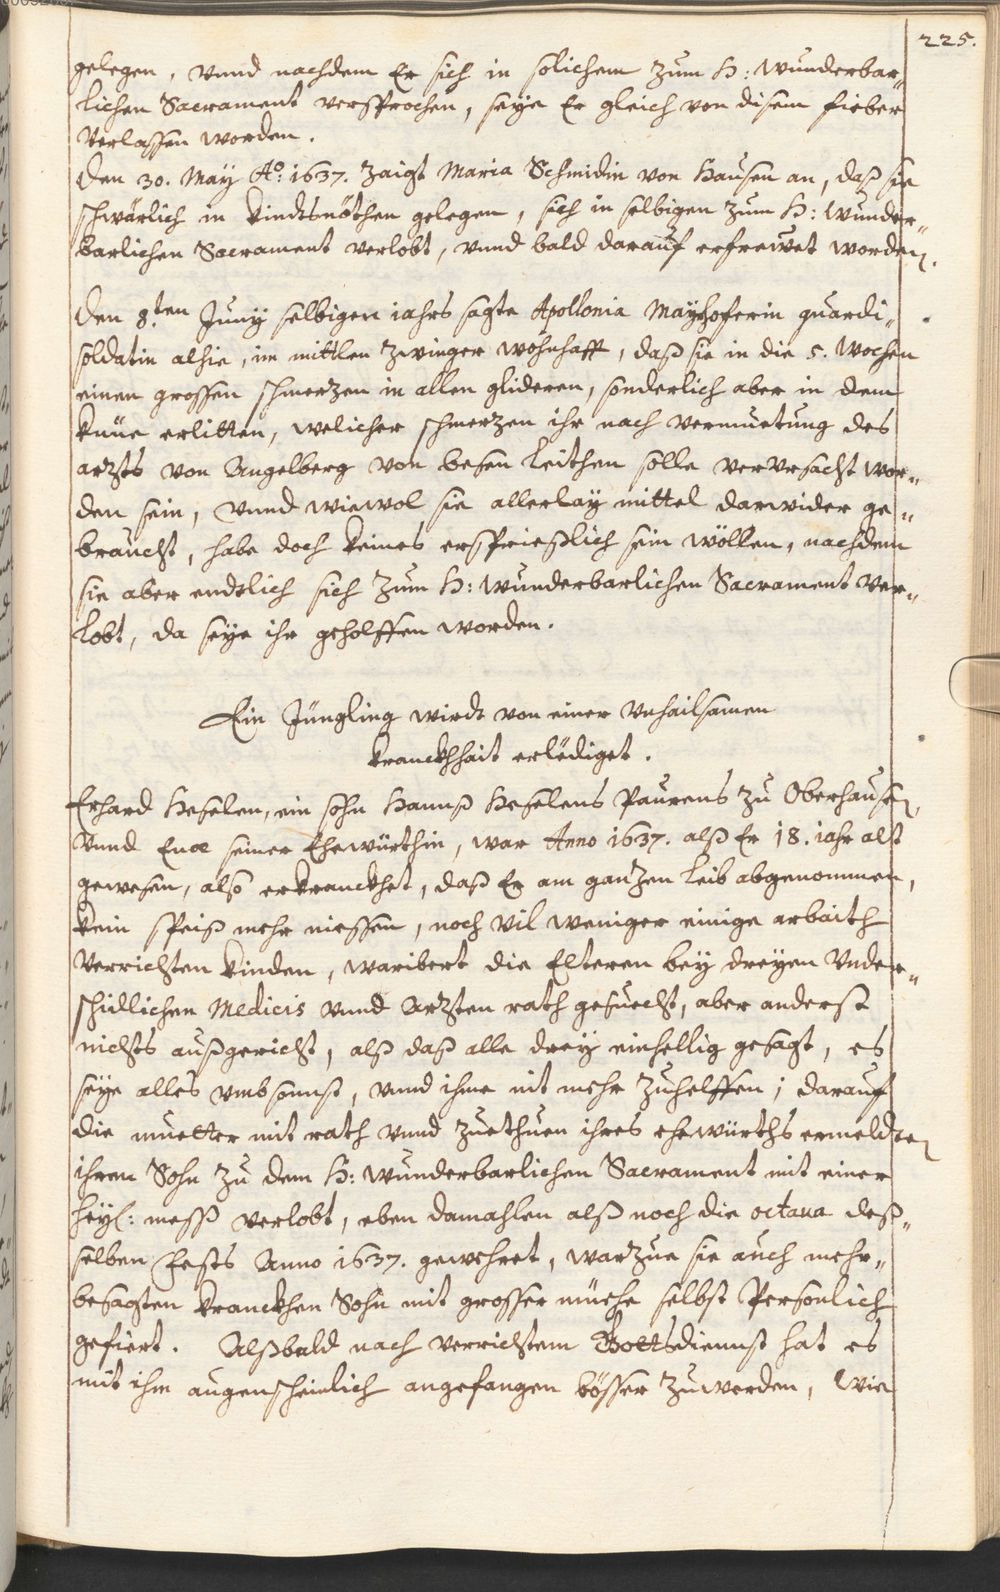 225.
gelegen, vnnd nachdem Er sich in solichem zum H: wunderbar„
lichen Sacrament versprochen, seye Er gleich von disem fieber
verlassen worden.
Den 30. May Aº. 1637. zaigt Maria Schmidin von Hausen an, daß sie
schwärlich in kindtsnöthen gelegen, sich in selbigen zum H: Wunder„
barlichen Sacrament verlobt, vnnd bald darauf erfrewet worden.
Den 8.ten Juny selbigen iahrs sagte Apollonia Mayhoferin guardi„
soldatin alhie, im mittlen Zwinger wohnhafft, daß sie in die 5. Wochen
einen grossen schmerzen in allen glideren, sonderlich aber in dem
knüe erlitten, welicher schmerzen ihr nach vermuetung des
arzts von Angelberg von besen leithen solle vervrsacht wor„
den sein, vnnd wiewol sie allerlay mittel darwider ge„
braucht, habe doch keines ersprießlich sein wöllen, nachdem
sie aber endtlich sich zum H: wunderbarlichen Sacrament ver„
lobt, da seye ihr geholffen worden.
Ein Jüngling wirdt von einer vnhailsamen
kranckhhait erlediget.
Erhard Hefelen, ein sohn Hannß Hefelens Paurens zu Oberhausen,
vnnd Euæ seiner Ehewürthin, war Anno 1637. alß Er 18. iahr alt
gewesen, also erkranckhet, daß Er am ganzen leib abgenommen,
kein speiß mehr niessen, noch vil weniger einige arbaith
verrichten kinden, waribert die Elteren bey dreyen vnder„
schidlichen Medicis vnnd Arzten rath gesuecht, aber anderst
nichts außgericht, alß daß alle drey einhellig gesagt, es
seye alles vmbsonst, vnnd ihme nit mehr zuhelffen; darauf
die muetter mit rath vnnd zuethuen ihres ehewürths ermeldten
ihren Sohn zu dem H: wunderbarlichen Sacrament mit einer
heyl: mesß verlobt, eben damahlen alß noch die octaua deß„
selben Fests Anno 1637. gewehret, warzue sie auch mehr„
besagten kranckhen Sohn mit grosser müehe selbst Persönlich
gefiert. Alßbald nach verrichtem Gottsdiennst hat es
mit ihm augenscheinlich angefangen bösser zuwerden, Wie